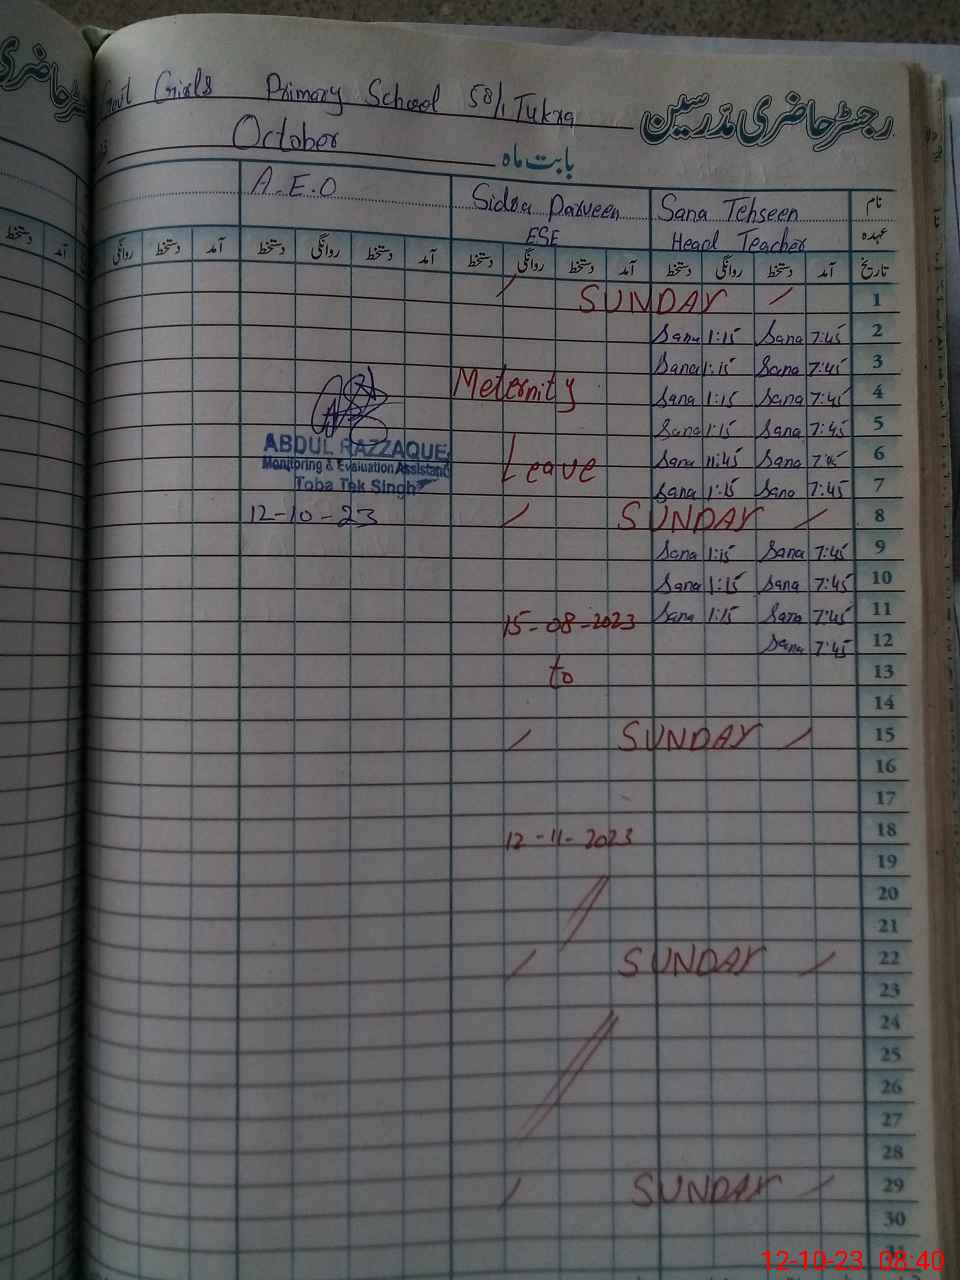 رجسٹر حاضری مدرسین
Govt Girls Primary School 58/1 Tukra
بابت ماہ October
نام Sana Tehseen Sidra Parveen A.E.O
عہدہ Head Teacher ESE
تاریخ آمد دستخط روانگی دستخط آمد دستخط روانگی دستخط آمد دستخط روانگی دستخط آمد دستخط روانگی
آمد دستخط
1 SUNDAY
2 7:45 Sana 1:15 Sana
3 7:45 Sana 1:15 Sana
4 7:45 Sana 1:15 Sana
5 7:45 Sana 1:15 Sana
6 7:45 Sana 11:45 Sana
7 7:45 Sana 1:15 Sana
8 SUNDAY
9 7:45 Sana 1:15 Sana
10 7:45 Sana 1:15 Sana
11 7:45 Sana 1:15 Sana
12 7:45 Sana
13
14
15 SUNDAY
16
17
18
19
20
21
22 SUNDAY
23
24
25
26
27
28
29 SUNDAY
30
31
Meternity
Leave
15-08-2023
to
12-11-2023
ABDUL RAZZAQUE
Monitoring & Evaluation Assistant
Toba Tek Singh
12-10-23
12-10-23 08:40